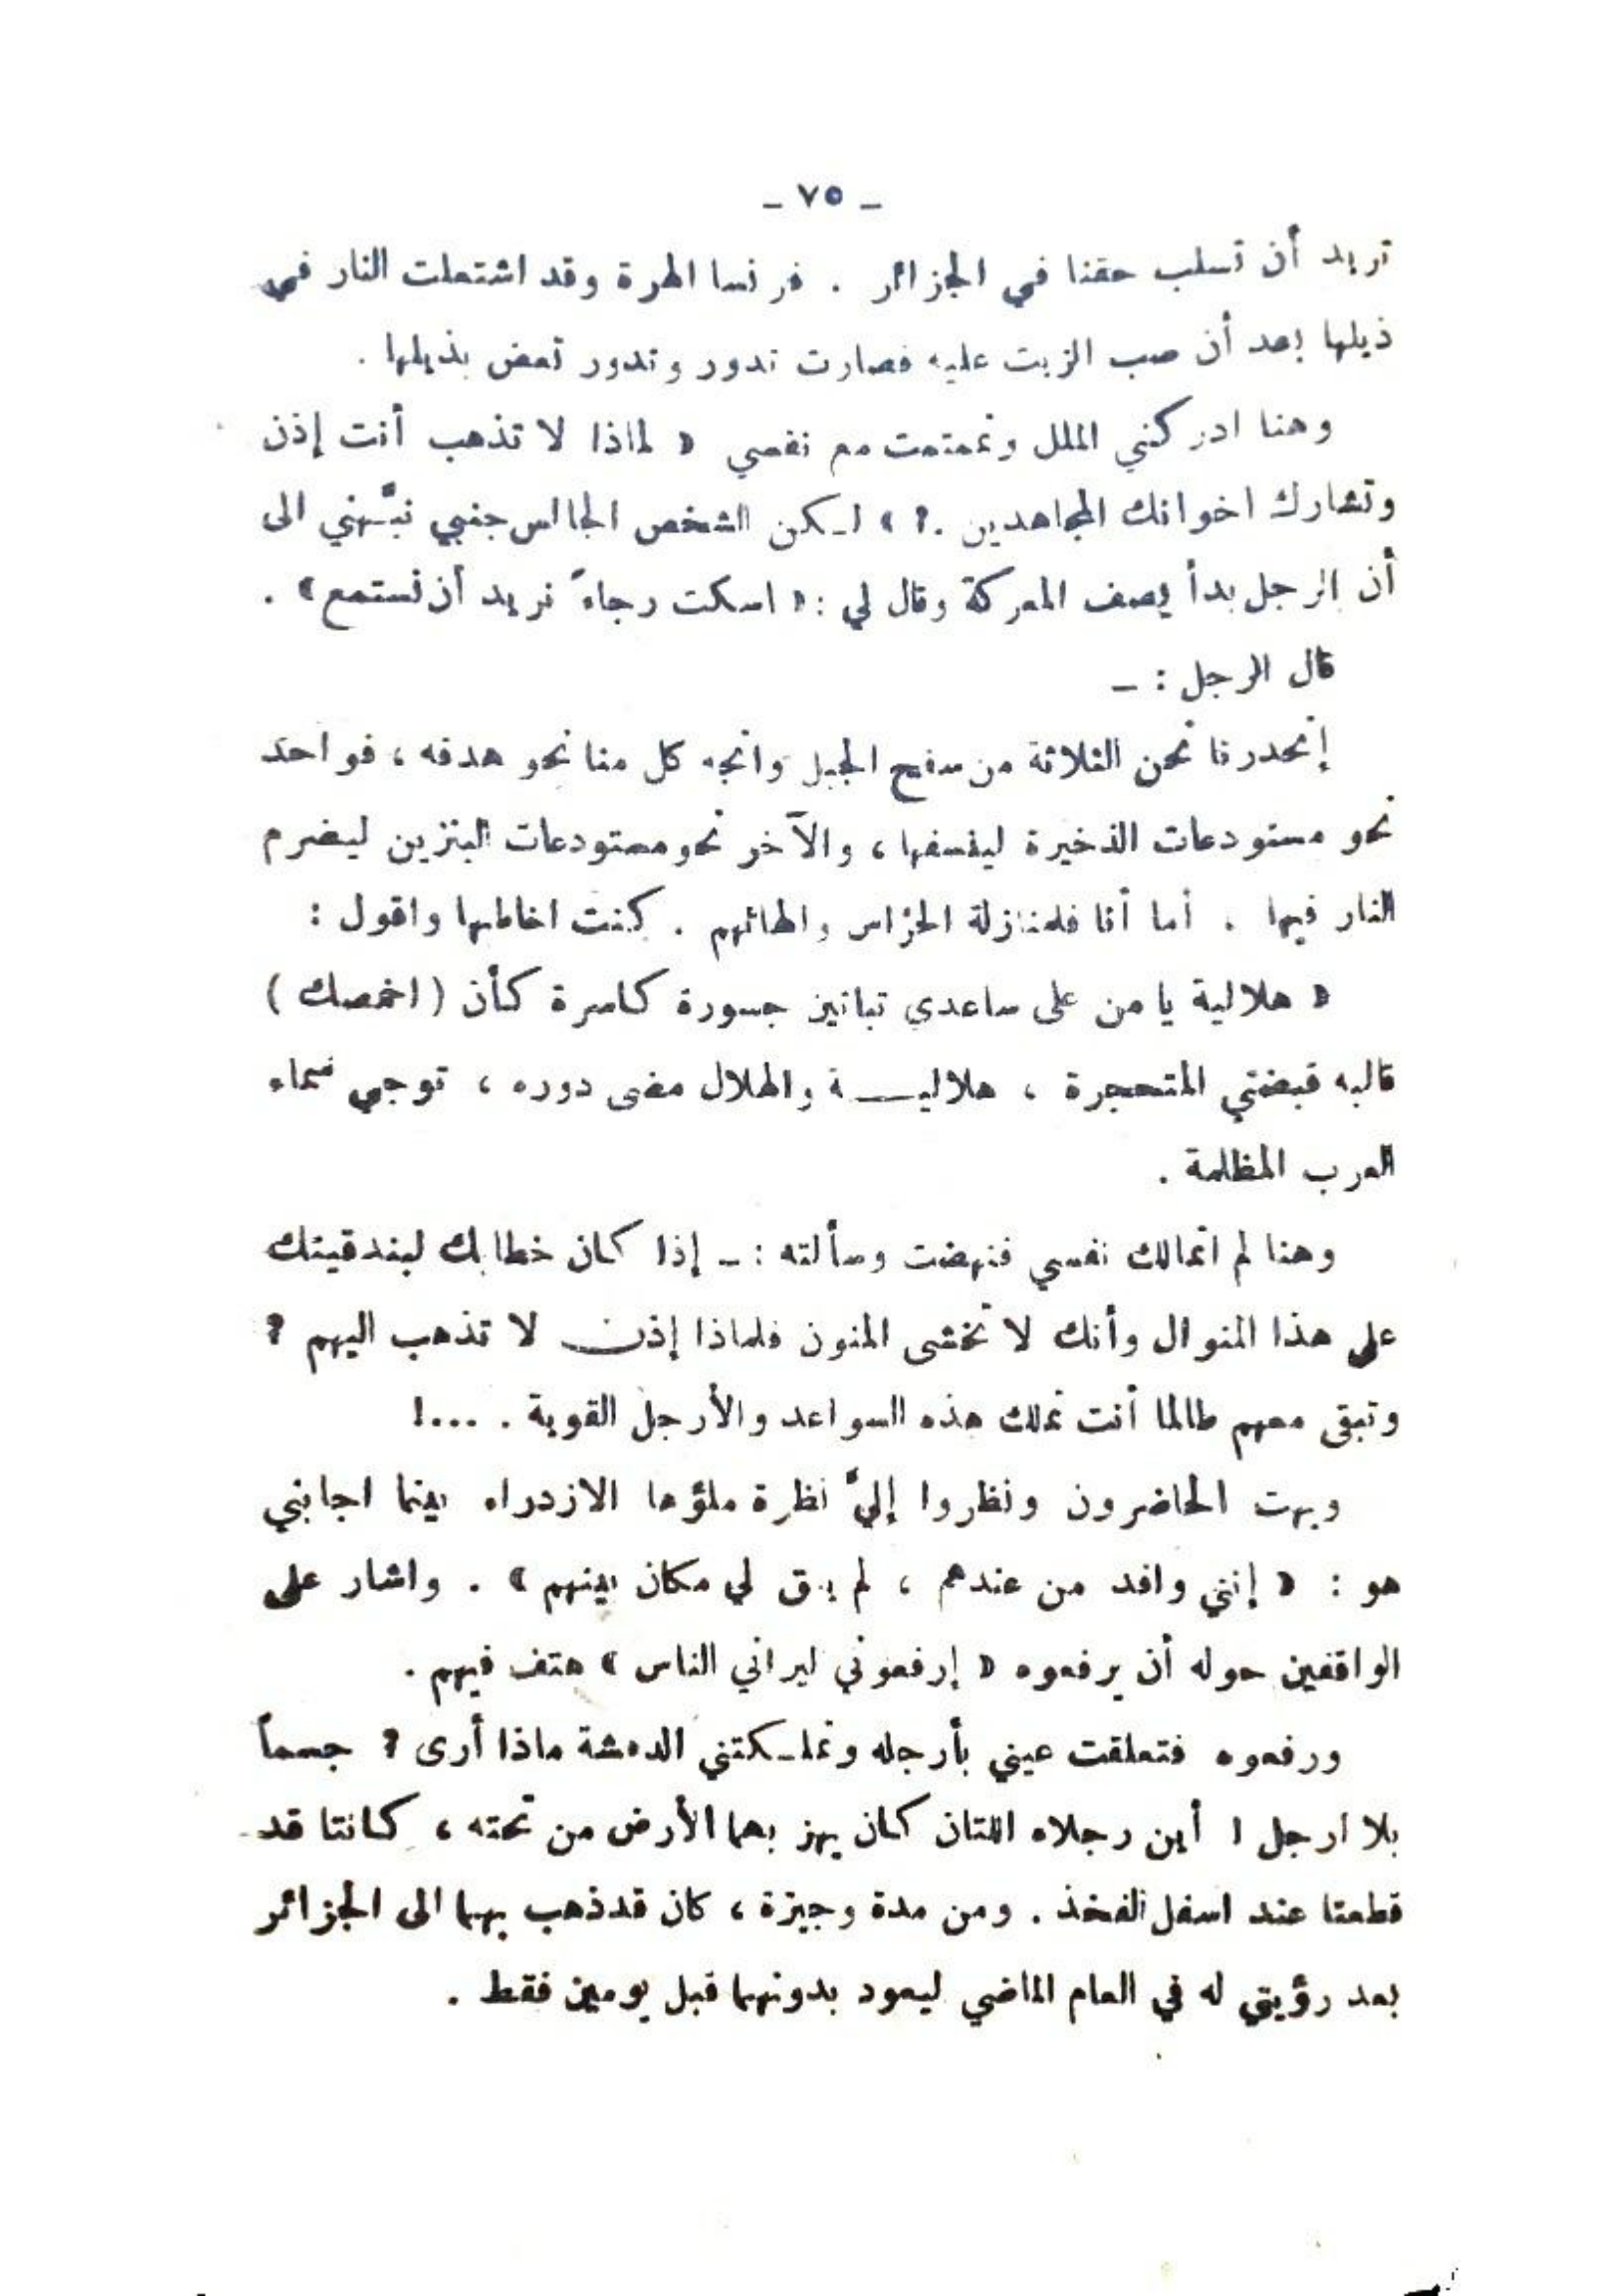 - ٧٥ -
تريد أن تسلب حقنا في الجزائر . فرنسا الهرة وقد اشتعلت النار في
ذيلها بعد أن صب الزيت عليه فصارت تدور وتدور تعض بذيلها .
وهنا ادركني الملل وتمتمت مع نفسي « لماذا لا تذهب أنت إذن
وتشارك اخوانك المجاهدين .؟ » لـكن الشخص الجالس جنبي نبَّهني الى
أن الرجل بدأ يصف المعركة وقال لي : « اسكت رجاءً نريد أن نستمع » .
قال الرجل : -
إنحدرنا نحن الثلاثة من سفح الجبل واتجه كل منا نحو هدفه ، فواحد
نحو مستودعات الذخيرة لينسفها ، والآخر نحو مستودعات البنزين ليضرم
النار فيها . أما أنا فلمنازلة الحرّاس والهائهم . كنت اخاطبها واقول :
« هلالية يا من على ساعدي تباتين جسورة كاسرة كأن ( اخمصك )
قالبه قبضتي المتحجرة ، هلاليـــة والهلال مضى دوره ، توجي سماء
العرب المظلمة .
وهنا لم اتمالك نفسي فنهضت وسألته : - إذا كان خطابك لبندقيتك
على هذا المنوال وأنك لا تخشى المنون فلماذا إذن لا تذهب اليهم ؟
وتبقى معهم طالما أنت تملك هذه السواعد والأرجل القوية . ...!
وبهت الحاضرون ونظروا إليَّ نظرة ملؤها الازدراء بينما اجابني
هو : « إنني وافد من عندهم ، لم يبق لي مكان بينهم » . واشار على
الواقفين حوله أن يرفعوه « إرفعوني ليراني الناس » هتف فيهم .
ورفعوه فتعلقت عيني بأرجله وتملـكتني الدهشة ماذا أرى ؟ جسماً
بلا ارجل ! أين رجلاه اللتان كان يهز بهما الأرض من تحته ، كانتا قد
قطعتا عند اسفل الفخذ . ومن مدة وجيزة ، كان قد ذهب بهما الى الجزائر
بعد رؤيتي له في العام الماضي ليعود بدونهما قبل يومين فقط .